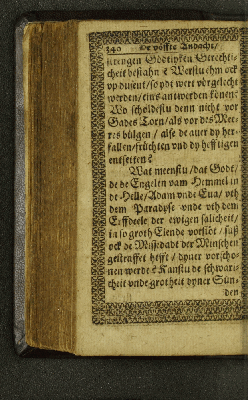 340 De vöffte Andacht/
strengen Gödtlyken Gerechti-
cheit bestahn? Werstu ehm ock
vp dusent/so ydt wert vörgelecht
werden/eins antwerden können?
Wo scholdestu denn nicht vor
Gades Torn/als vor des Mee-
res bülgen / alse de auer dy her-
fallen/früchten vnd dy hefftigen
entsetten?
Wat meenstu/dat Godt/
de de Engelen vam Hemmel in
de Helle/Adam vnde Eua/ vth
dem Paradyse vnde vth dem
Erffdeele der ewigen salicheit/
in so groth Elende vorstöt/ süß
ock de Missedadt der Minschen
gestraffet hefft / dyner vorscho-
nen werde? Kanstu de schwar-
cheit vnde grotheit dyner Sün-
den